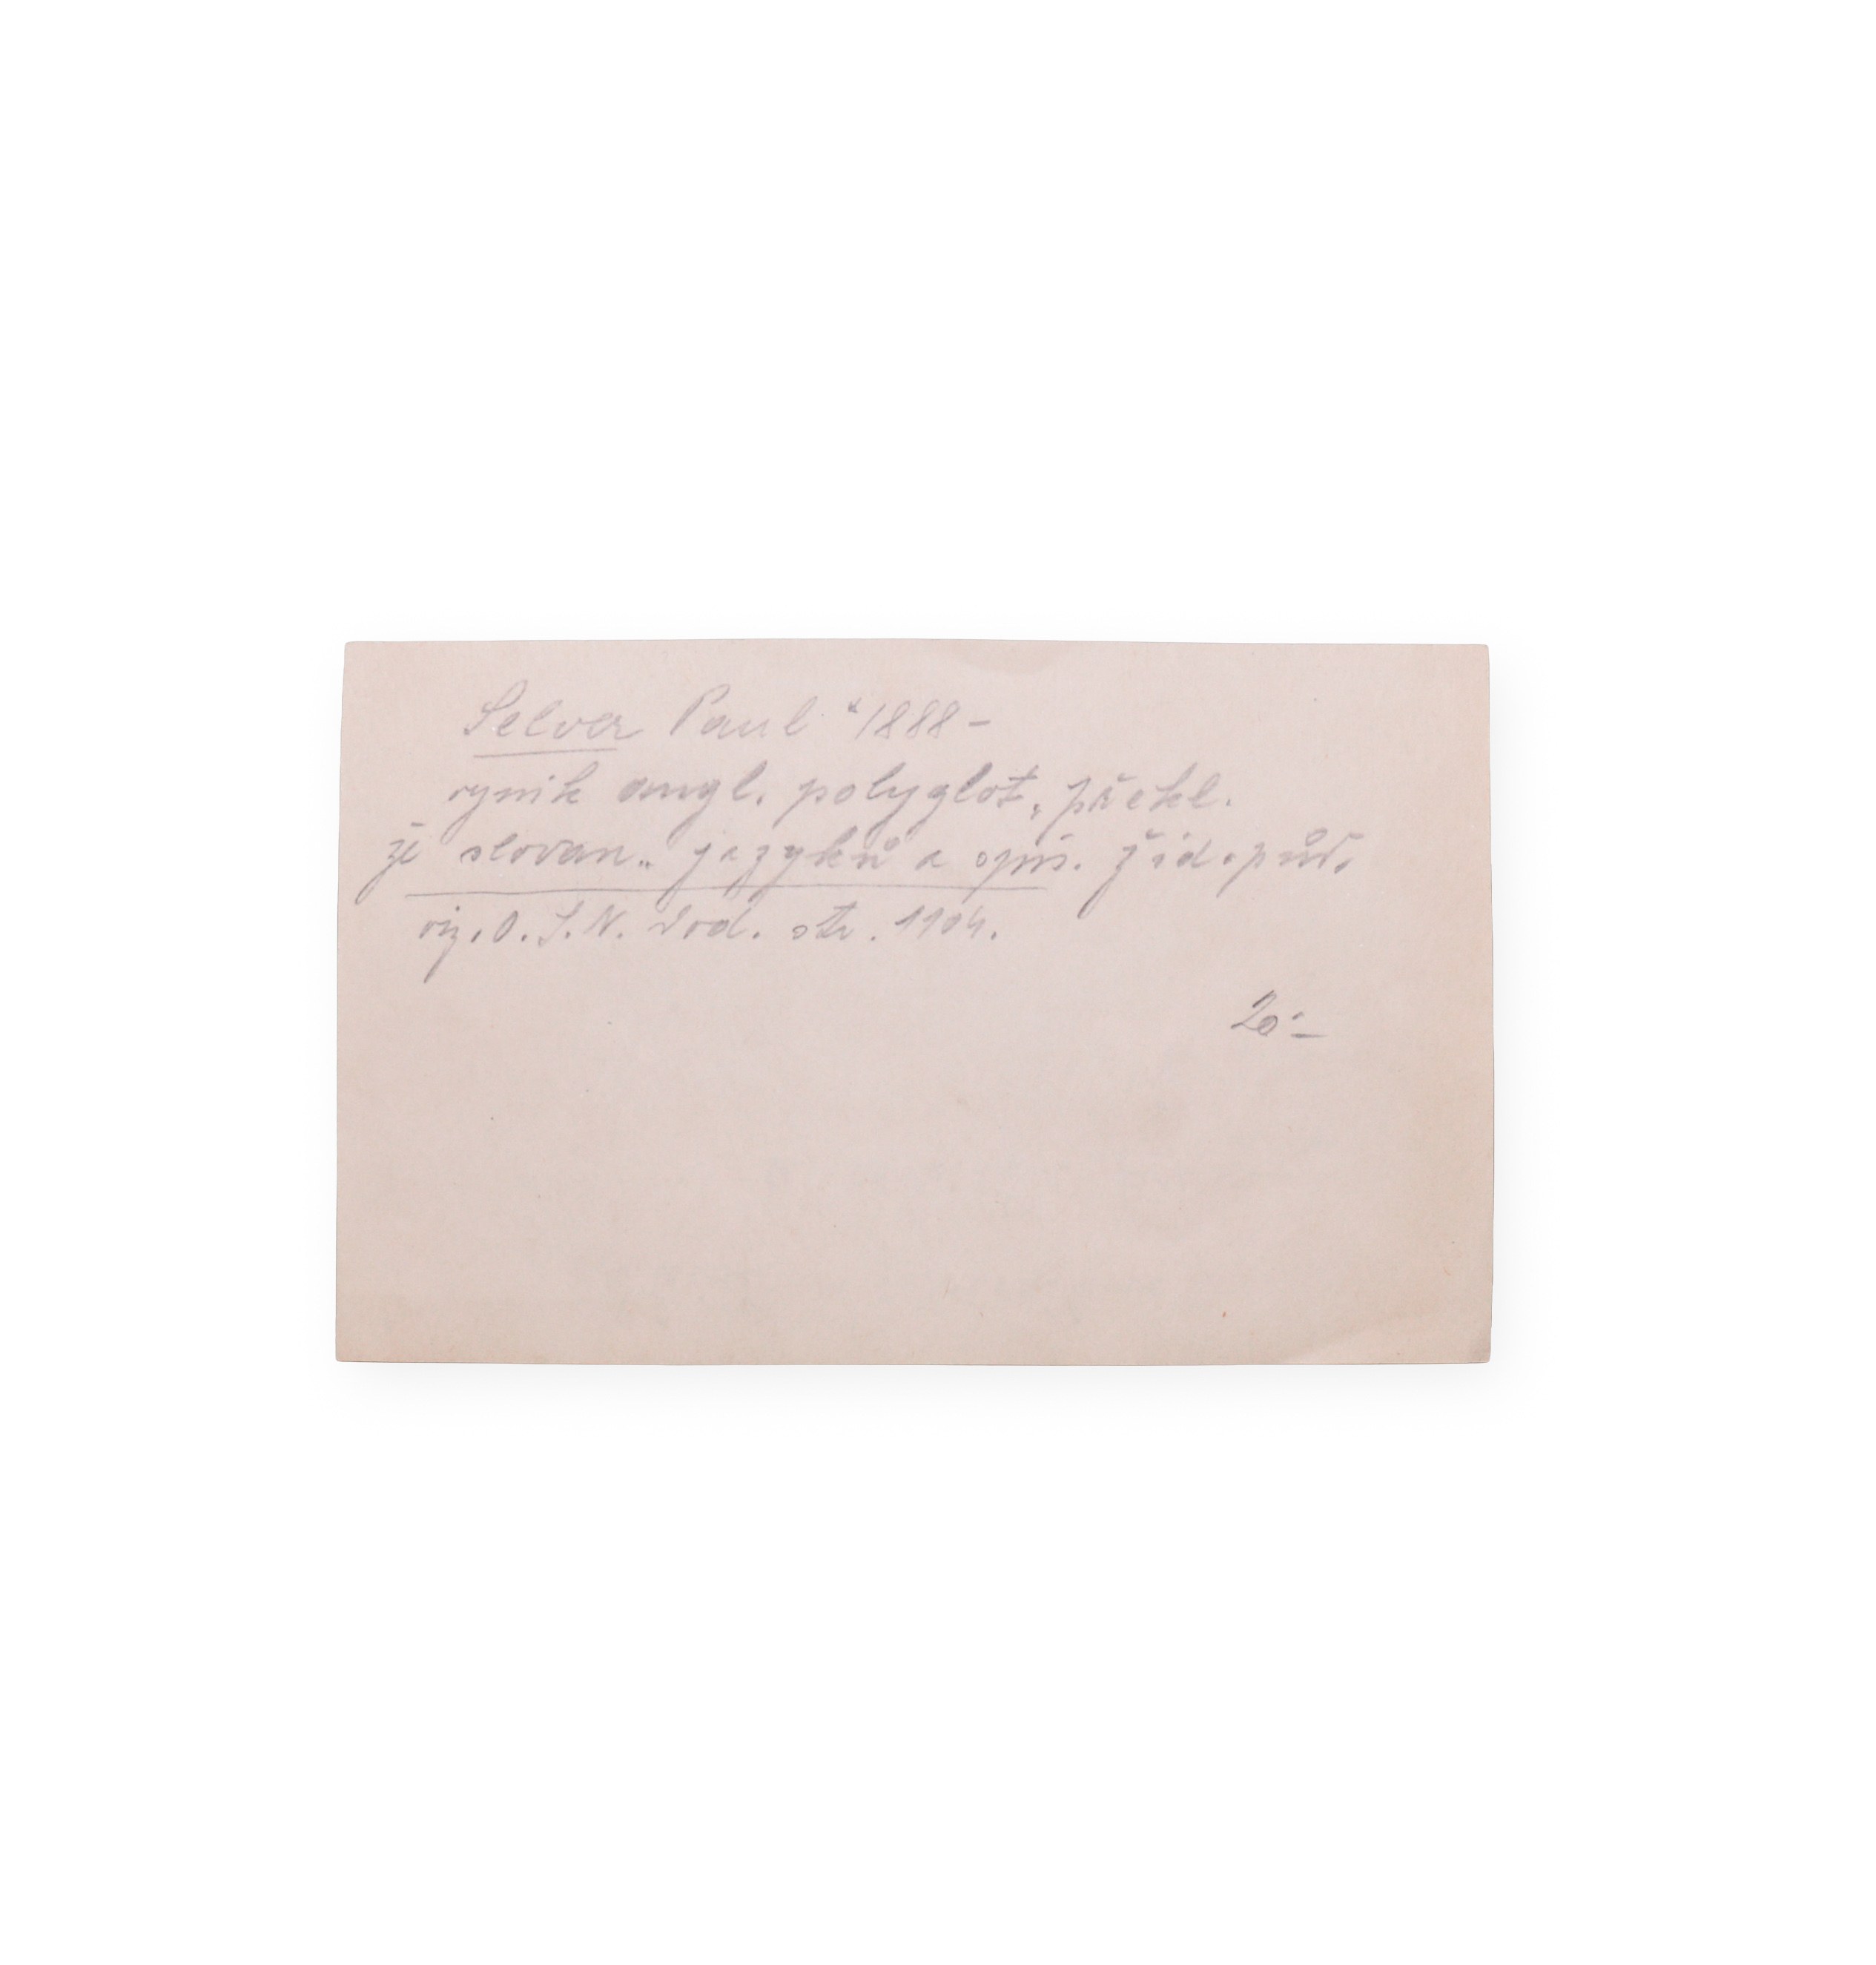 Selver Paul *1888-
vynik angl. polyglot, překl.
ze slovan. jazyků a spis. žid. pův.
viz. O.S.N. dod. str. 1104.
20·-